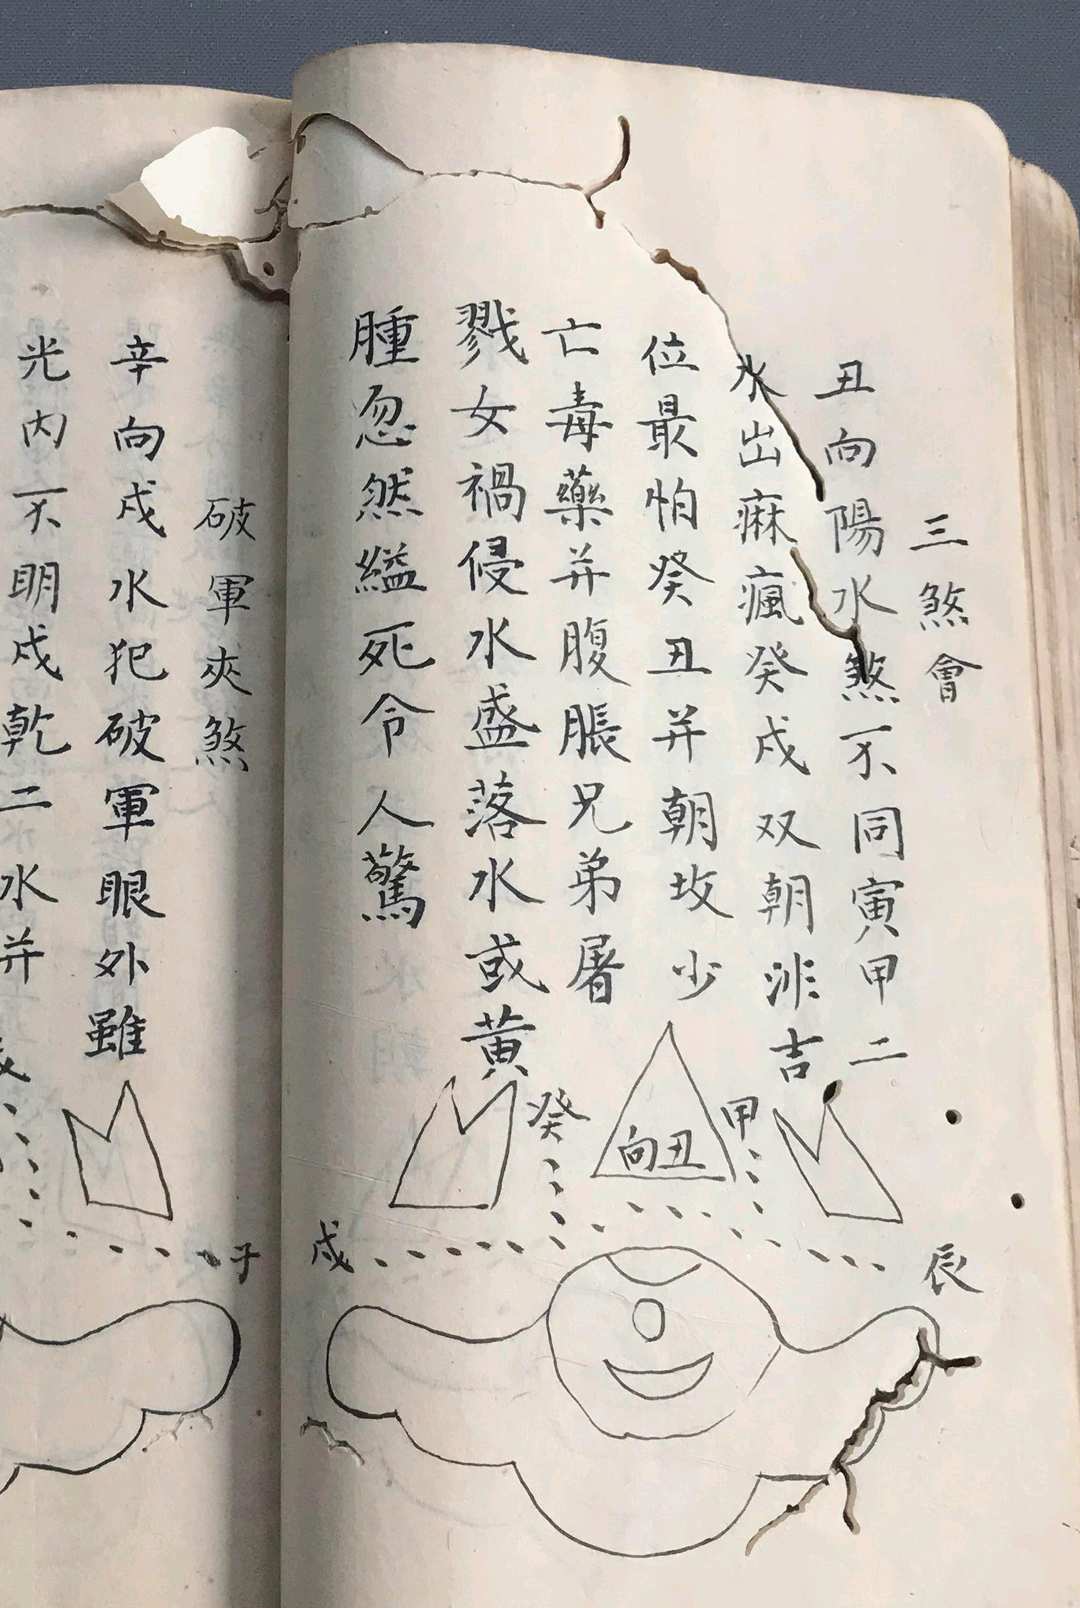 三煞會
丑向陽水煞不同寅甲二
水出麻瘋癸戌双朝非吉
位最怕癸丑并朝坟少
亡毒藥并腹脹兄弟屠
戮女禍侵水盛落水或黃
腫忽然縊死令人驚
癸
向丑
甲
戌
辰
破軍夾煞
辛向戌水犯破軍眼外雖
光内不明戌乾二水并
子